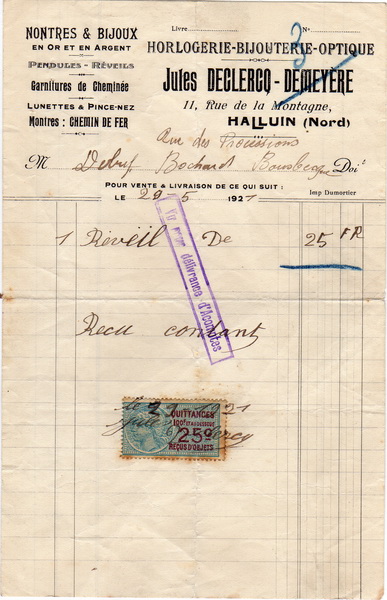 NONTRES & BIJOUX
EN OR ET EN ARGENT
PENDULES - RÉVEILS
Garnitures de Cheminée
LUNETTES & PINCE-NEZ
Montres : CHEMIN DE FER
Livre
N°
3
HORLOGERIE-BIJOUTERIE-OPTIQUE
Jules DECLERCQ - DEMEYÈRE
11, Rue de la Montagne,
HALLUIN (Nord)
Rue des Processions
M Bochard Doit
POUR VENTE & LIVRAISON DE CE QUI SUIT :
Imp Dumortier
LE 29 - 5 1921
1 Réveil De 25 FR
Vu pour délivrance d'Acomptes
Recu contant
le 29 1921
QUITTANCES
100F ET AU DESSOUS
25c
REÇUS D'OBJETS